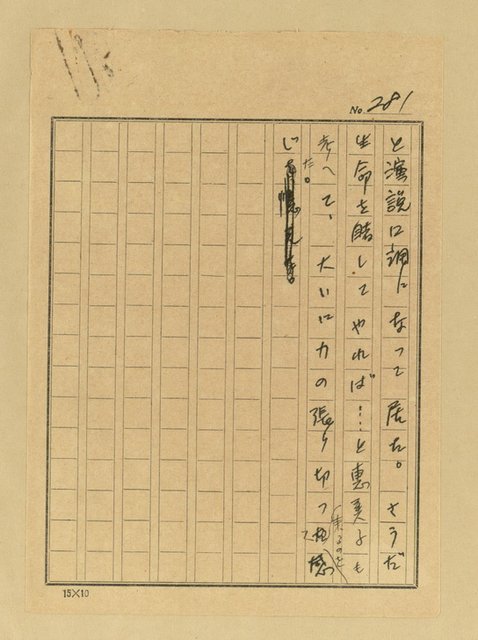 No. 281
と演説口調になって居た。さうだ
生命を賭してやれば……と恵美子も
考へて、大いに力の張り切って来るのを感
じた。
15×10